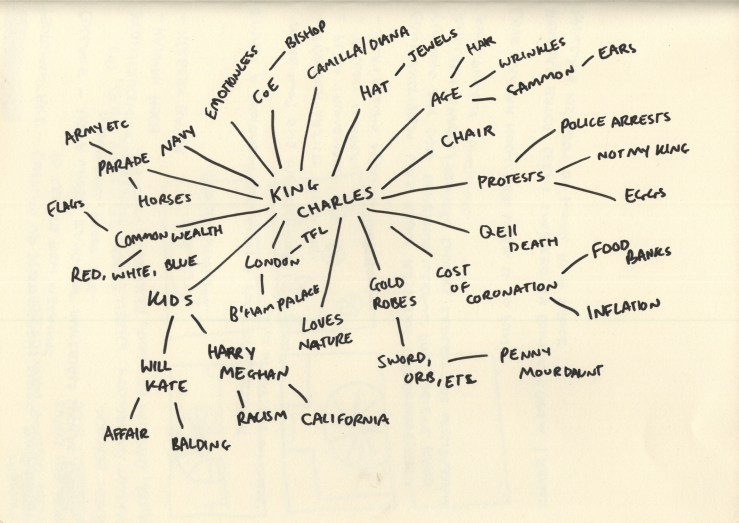 EMOTIONLESS
CoE
BISHOP
CAMILLA/DIANA
HAT
JEWELS
AGE
HAIR
WRINKLES
GAMMON
EARS
ARMY ETC
PARADE
NAVY
HORSES
CHAIR
POLICE ARRESTS
PROTESTS
NOT MY KING
EGGS
KING
CHARLES
FLAGS
COMMONWEALTH
RED, WHITE, BLUE
LONDON
TFL
B'HAM PALACE
LOVES
NATURE
GOLD
ROBES
COST
OF
CORONATION
QEII
DEATH
FOOD
BANKS
INFLATION
KIDS
WILL
KATE
AFFAIR
BALDING
HARRY
MEGHAN
RACISM
CALIFORNIA
SWORD,
ORB, ETC
PENNY
MOURDAUNT